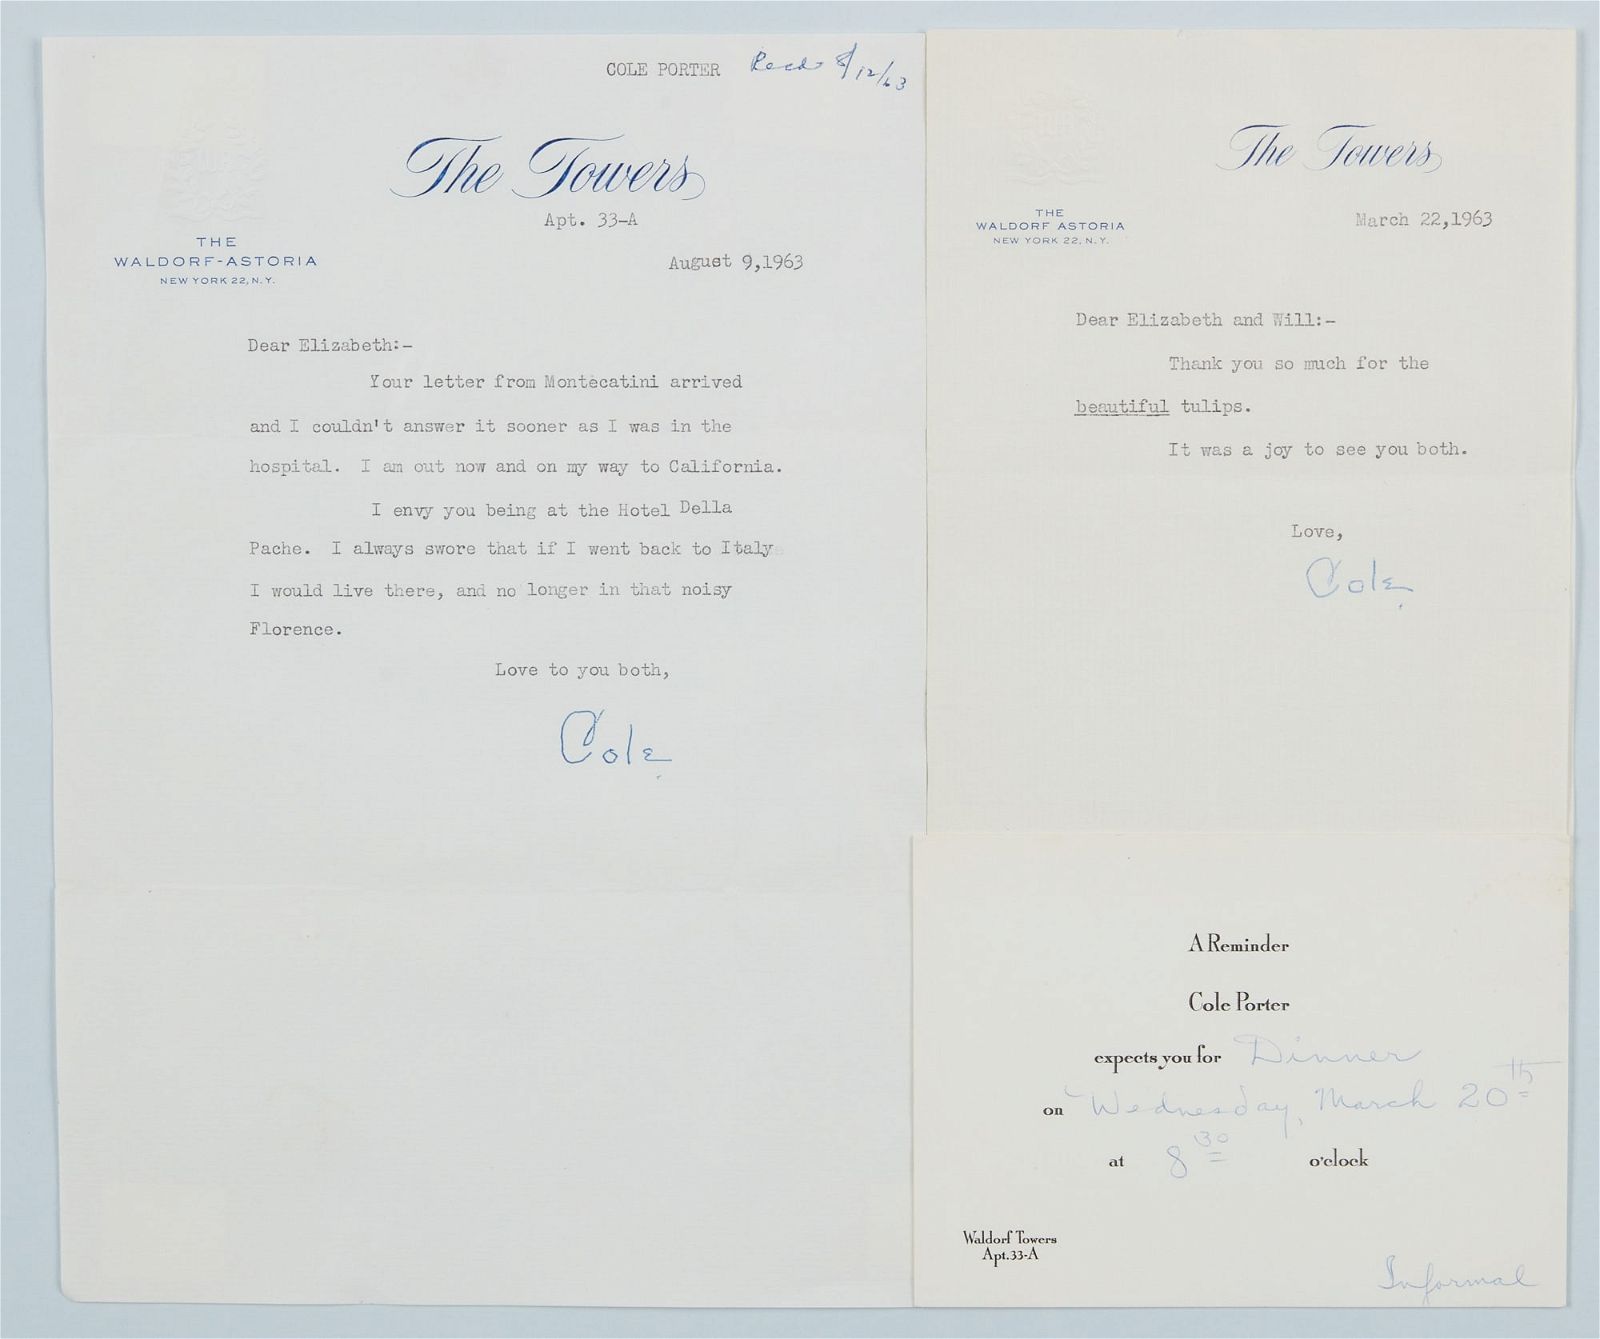 COLE PORTER Recd 8/12/63
The Towers
Apt. 33-A
THE
WALDORF-ASTORIA
NEW YORK 22, N.Y.
August 9,1963
Dear Elizabeth:-
Your letter from Montecatini arrived
and I couldn't answer it sooner as I was in the
hospital. I am out now and on my way to California.
I envy you being at the Hotel Della
Pache. I always swore that if I went back to Italy
I would live there, and no longer in that noisy
Florence.
Love to you both,
Cole
The Towers
THE
WALDORF ASTORIA
NEW YORK 22, N.Y.
March 22,1963
Dear Elizabeth and Will:-
Thank you so much for the
beautiful tulips.
It was a joy to see you both.
Love,
Cole
A Reminder
Cole Porter
expects you for Dinner
on Wednesday, March 20th
at 8 30 o'clock
Waldorf Towers
Apt. 33-A
Informal